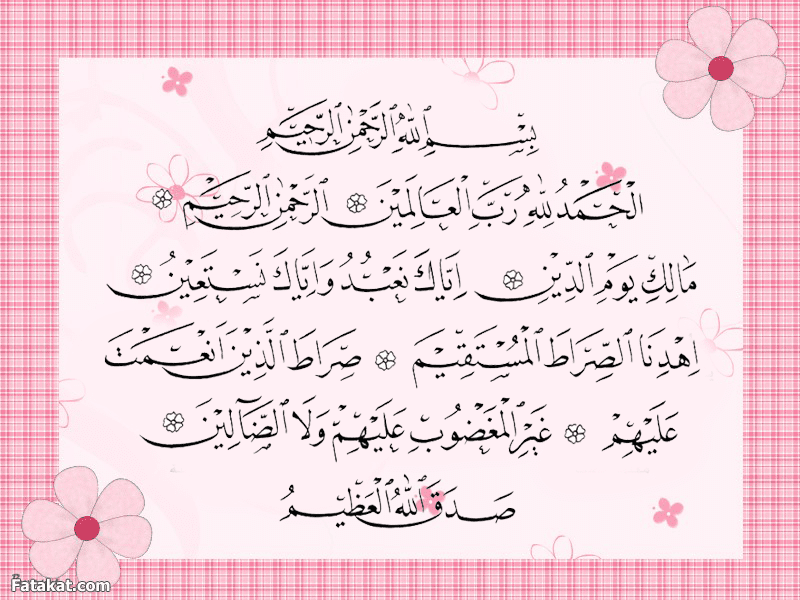 بِسْمِ ٱللّٰهِ ٱلرَّحْمٰنِ ٱلرَّحِيمِ
الْحَمْدُ لِلّٰهِ رَبِّ الْعَالَمِيْنَ ۞ ٱلرَّحْمٰنِ ٱلرَّحِيْمِ ۞
مَالِكِ يَوْمِ ٱلدِّيْنِ ۞ اِيَّاكَ نَعْبُدُ وَاِيَّاكَ نَسْتَعِيْنُ ۞
اِهْدِنَا ٱلصِّرَاطَ ٱلْمُسْتَقِيْمَ ۞ صِرَاطَ ٱلَّذِيْنَ اَنْعَمْتَ
عَلَيْهِمْ ۞ غَيْرِ ٱلْمَغْضُوْبِ عَلَيْهِمْ وَلَا ٱلضَّآلِيْنَ ۞
صَدَقَ ٱللّٰهُ ٱلْعَظِيْمُ
Fatakat.com